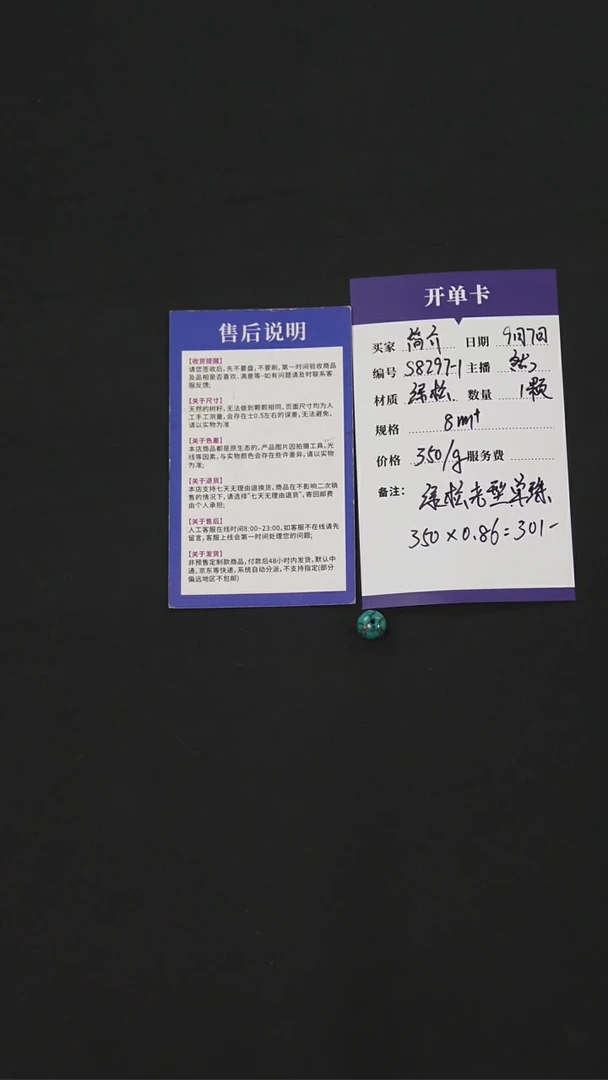 售后说明
【收货提醒】
请您签收后,先不要盘,不要刷,第一时间验收商品
及品相是否喜欢、满意等-如有问题请及时联系客
服反馈;
【关于尺寸】
天然的树籽,无法做到颗颗相同,页面尺寸均为人
工手工测量,会存在士0.5左右的误差,无法避免,
请以实物为准
【关于色差】
本店商品都是原生态的,产品图片因拍摄工具,光
线等因素,与实物颜色会存在些许差异,请以实物
为准;
【关于退货】
本店支持七天无理由退换货,商品在不影响二次销
售的情况下,请选择“七天无理由退货”,寄回邮费
由个人承担;
【关于售后】
人工客服在线时间8:00-23:00,如客服不在线请先
留言,客服上线会第一时间处理您的问题;
【关于发货】
非预售定制款商品,付款后48小时内发货,默认中
通、京东等快递,系统自动分派,不支持指定(部分
偏远地区不包邮)
开单卡
买家 简介 日期 9月7日
编号 S8297-1 主播
材质 绿松 数量 1颗
规格 8m+
价格 350/g 服务费
备注: 绿松老型单珠
350×0.86=301-